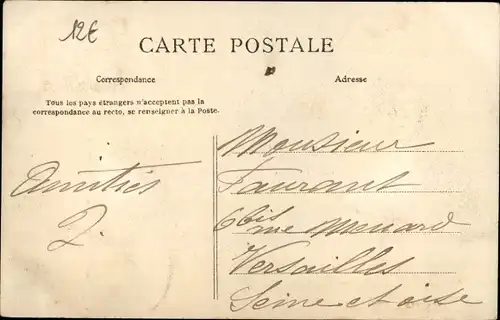 12€
CARTE POSTALE
Correspondance
Adresse
Tous les pays étrangers n'acceptent pas la
correspondance au recto, se renseigner à la Poste.
Amitiés
J.
Monsieur
Faurant
6 bis rue Menard
Versailles
Seine et oise